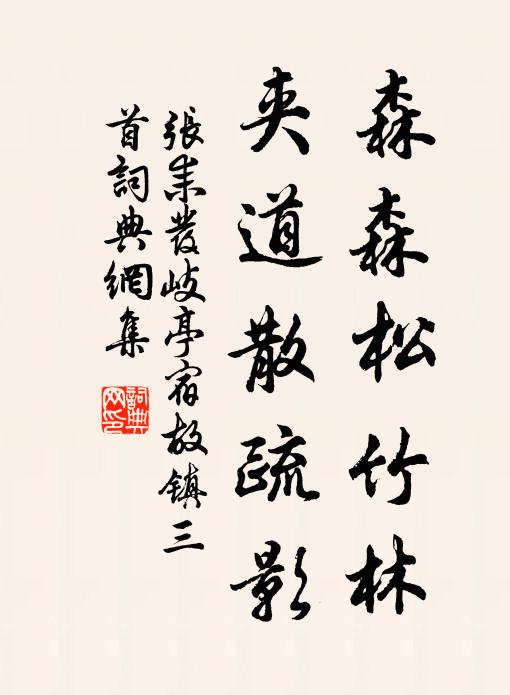 森森松竹林
夾道散疏影
張耒發岐亭宿故鎮三
首詞典網集
詞典
网印